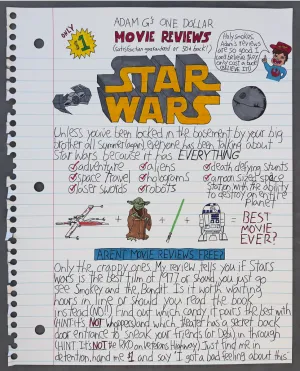 ADAM G's ONE DOLLAR
MOVIE REVIEWS
(satisfaction guaranteed or 50¢ back!)
ONLY
$1
Holy smokes
Adam's reviews
are so good I
can't believe they
only cost a buck!
BELIEVE IT!
STAR
WARS
Unless you've been locked in the basement by your big
brother all summer (again) everyone has been talking about
Star Wars because it has EVERYTHING
adventure
aliens
death defying stunts
space travel
holograms
a moon sized space
laser swords
robots
station with the ability
to destroy an entire
planet
+ + + = BEST
MOVIE
EVER?
ARENT MOVIE REVIEWS FREE?
Only the crappy ones. My review tells you if Stars
Wars is the best film of 1977 or should you just go
see Smokey and the Bandit. Is it worth waiting
hours in line or should you read the book
instead (NO!!) Find out which candy it pairs the best with
(HINT: It's NOT whoppers) and which theater has a secret back
door entrance to sneak your friends (or Deb) in through
(HINT: It's NOT the RKO on Veterans Highway). Just find me in
detention, hand me $1 and say "I got a bad feeling about this."